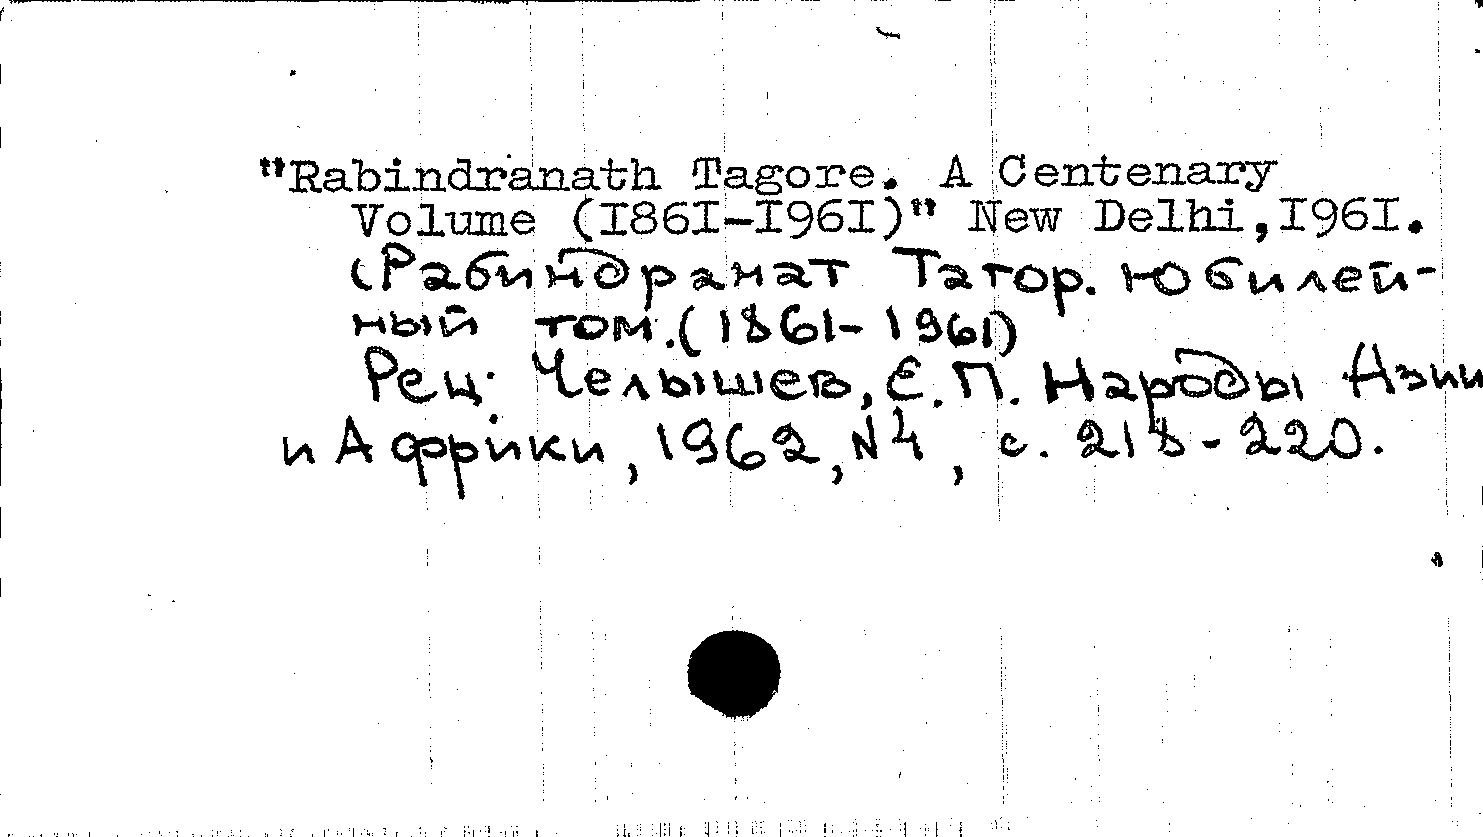 "Rabindranath Tagore. A Centenary
Volume (I86I-I96I)" New Delhi,I96I.
(Рабиндранат Тагор. Юбилей-
ный том.(1861-1961)
Рец: Челышев, Е.П. Народы Азии
и Африки, 1962, N4, с. 218-220.